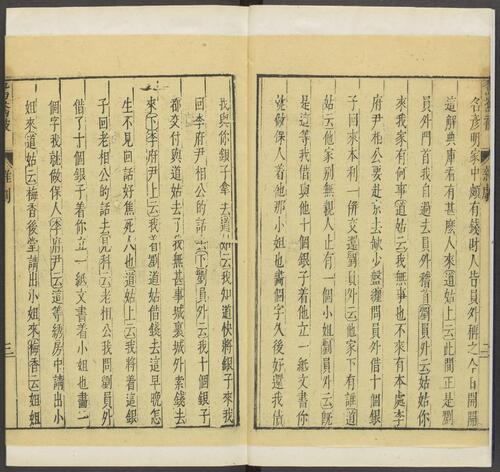 名彥明家中頗有幾財人皆員外稱之今日開開
這解典庫看有甚麼人來道姑上云此間正是劉
員外門首我自過去員外稽首劉員外云姑姑你
來我家有何事道姑云我無事也不來有本處李
府尹相公要赴京去缺少盤纏問員外借十個銀
子回來本利一併交還劉員外云他家下有誰道
姑云他家別無親人止有一個小姐劉員外云旣
是這等我借與他十個銀子着他立一紙文書你
就做保人着他那小姐也畫個字久後好還我債
我與你銀子拿去道姑云我知道快將銀子來我
回李府尹相公的話去下劉員外云我十個銀子
都交付與道姑去了我無甚事城裏城外索錢去
來下李府尹上云我着劉道姑借錢去這早晚怎
生不見回話好焦死人也道姑上云我將着這銀
子回老相公的話去見科云老相公我問劉員外
借了十個銀子着你立一紙文書着小姐也畫一
個字我就做保人李府尹云這等綉房中請出小
姐來道姑云梅香後堂請出小姐來梅香云姐姐
雜劇
二
三